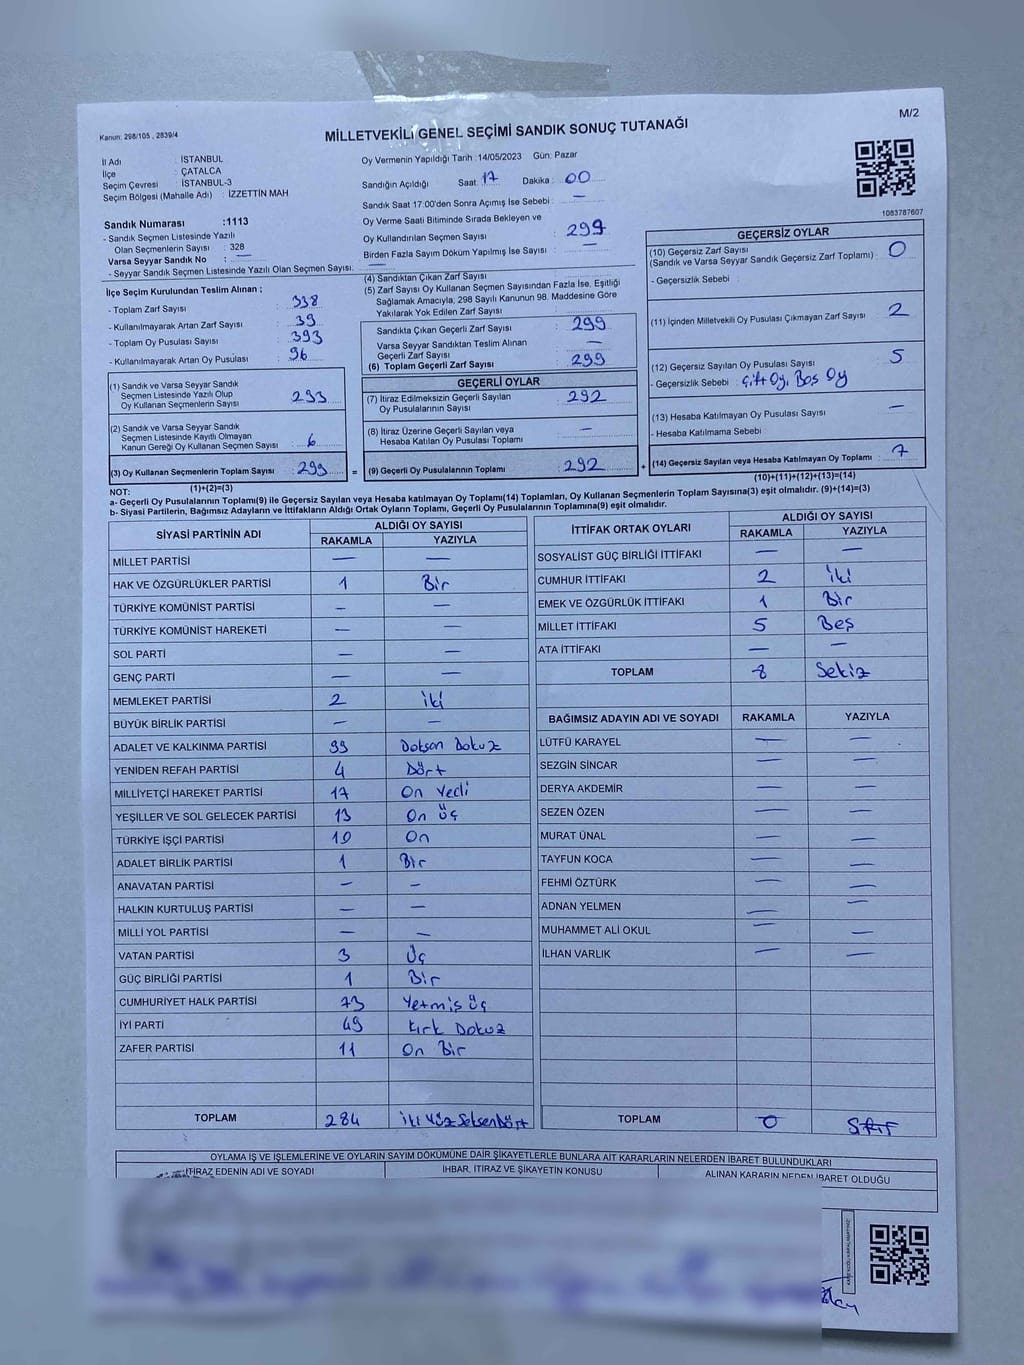 M/2
Kanun: 298/105 , 2839/4
MİLLETVEKİLİ GENEL SEÇİMİ SANDIK SONUÇ TUTANAĞI
İl Adı : İSTANBUL
İlçe : ÇATALCA
Seçim Çevresi : İSTANBUL-3
Seçim Bölgesi (Mahalle Adı) : İZZETTİN MAH
Oy Vermenin Yapıldığı Tarih : 14/05/2023 Gün: Pazar
Sandığın Açıldığı Saat: 17 Dakika : 00
Sandık Saat 17:00'den Sonra Açımış İse Sebebi : —
Oy Verme Saati Bitiminde Sırada Bekleyen ve
Oy Kullandırılan Seçmen Sayısı : 299
Birden Fazla Sayım Döküm Yapılmış İse Sayısı : —
1083787607
Sandık Numarası :1113
- Sandık Seçmen Listesinde Yazılı
Olan Seçmenlerin Sayısı : 328
Varsa Seyyar Sandık No : —
- Seyyar Sandık Seçmen Listesinde Yazılı Olan Seçmen Sayısı: —
İlçe Seçim Kurulundan Teslim Alınan ;
- Toplam Zarf Sayısı : 338
- Kullanılmayarak Artan Zarf Sayısı : 39
- Toplam Oy Pusulası Sayısı : 393
- Kullanılmayarak Artan Oy Pusulası : 96
(1) Sandık ve Varsa Seyyar Sandık
Seçmen Listesinde Yazılı Olup
Oy Kullanan Seçmenlerin Sayısı : 293
(2) Sandık ve Varsa Seyyar Sandık
Seçmen Listesinde Kayıtlı Olmayan
Kanun Gereği Oy Kullanan Seçmen Sayısı : 6
(3) Oy Kullanan Seçmenlerin Toplam Sayısı : 299
(1)+(2)=(3)
(4) Sandıktan Çıkan Zarf Sayısı
(5) Zarf Sayısı Oy Kullanan Seçmen Sayısından Fazla İse, Eşitliği
Sağlamak Amacıyla; 298 Sayılı Kanunun 98. Maddesine Göre
Yakılarak Yok Edilen Zarf Sayısı
Sandıkta Çıkan Geçerli Zarf Sayısı : 299
Varsa Seyyar Sandıktan Teslim Alınan
Geçerli Zarf Sayısı : —
(6) Toplam Geçerli Zarf Sayısı : 299
GEÇERLİ OYLAR
(7) İtiraz Edilmeksizin Geçerli Sayılan
Oy Pusulalarının Sayısı : 292
(8) İtiraz Üzerine Geçerli Sayılan veya
Hesaba Katılan Oy Pusulası Toplamı : —
= (9) Geçerli Oy Pusulalarının Toplamı : 292 +
GEÇERSİZ OYLAR
(10) Geçersiz Zarf Sayısı
(Sandık ve Varsa Seyyar Sandık Geçersiz Zarf Toplamı) : 0
- Geçersizlik Sebebi :
(11) İçinden Milletvekili Oy Pusulası Çıkmayan Zarf Sayısı : 2
(12) Geçersiz Sayılan Oy Pusulası Sayısı : 5
- Geçersizlik Sebebi : Çift Oy, Boş Oy
(13) Hesaba Katılmayan Oy Pusulası Sayısı : —
- Hesaba Katılmama Sebebi :
(14) Geçersiz Sayılan veya Hesaba Katılmayan Oy Toplamı : 7
(10)+(11)+(12)+(13)=(14)
NOT:
a- Geçerli Oy Pusulalarının Toplamı(9) ile Geçersiz Sayılan veya Hesaba katılmayan Oy Toplamı(14) Toplamları, Oy Kullanan Seçmenlerin Toplam Sayısına(3) eşit olmalıdır. (9)+(14)=(3)
b- Siyasi Partilerin, Bağımsız Adayların ve İttifakların Aldığı Ortak Oyların Toplamı, Geçerli Oy Pusulalarının Toplamına(9) eşit olmalıdır.
SİYASİ PARTİNİN ADI ALDIĞI OY SAYISI
RAKAMLA YAZIYLA
MİLLET PARTİSİ — —
HAK VE ÖZGÜRLÜKLER PARTİSİ 1 Bir
TÜRKİYE KOMÜNİST PARTİSİ — —
TÜRKİYE KOMÜNİST HAREKETİ — —
SOL PARTİ — —
GENÇ PARTİ — —
MEMLEKET PARTİSİ 2 iki
BÜYÜK BİRLİK PARTİSİ — —
ADALET VE KALKINMA PARTİSİ 99 Doksan Dokuz
YENİDEN REFAH PARTİSİ 4 Dört
MİLLİYETÇİ HAREKET PARTİSİ 17 On Yedi
YEŞİLLER VE SOL GELECEK PARTİSİ 13 On Üç
TÜRKİYE İŞÇİ PARTİSİ 10 On
ADALET BİRLİK PARTİSİ 1 Bir
ANAVATAN PARTİSİ — —
HALKIN KURTULUŞ PARTİSİ — —
MİLLİ YOL PARTİSİ — —
VATAN PARTİSİ 3 Üç
GÜÇ BİRLİĞİ PARTİSİ 1 Bir
CUMHURİYET HALK PARTİSİ 73 Yetmiş Üç
İYİ PARTİ 49 Kırk Dokuz
ZAFER PARTİSİ 11 On Bir
TOPLAM 284 iki Yüz Seksen Dört
İTTİFAK ORTAK OYLARI ALDIĞI OY SAYISI
RAKAMLA YAZIYLA
SOSYALİST GÜÇ BİRLİĞİ İTTİFAKI — —
CUMHUR İTTİFAKI 2 iki
EMEK VE ÖZGÜRLÜK İTTİFAKI 1 Bir
MİLLET İTTİFAKI 5 Beş
ATA İTTİFAKI — —
TOPLAM 8 Sekiz
BAĞIMSIZ ADAYIN ADI VE SOYADI RAKAMLA YAZIYLA
LÜTFÜ KARAYEL — —
SEZGİN SİNCAR — —
DERYA AKDEMİR — —
SEZEN ÖZEN — —
MURAT ÜNAL — —
TAYFUN KOCA — —
FEHMİ ÖZTÜRK — —
ADNAN YELMEN — —
MUHAMMET ALİ OKUL — —
İLHAN VARLIK — —
TOPLAM 0 Sıfır
OYLAMA İŞ VE İŞLEMLERİNE VE OYLARIN SAYIM DÖKÜMÜNE DAİR ŞİKAYETLERLE BUNLARA AİT KARARLARIN NELERDEN İBARET BULUNDUKLARI
İTİRAZ EDENİN ADI VE SOYADI İHBAR, İTİRAZ VE ŞİKAYETİN KONUSU ALINAN KARARIN NEDEN İBARET OLDUĞU